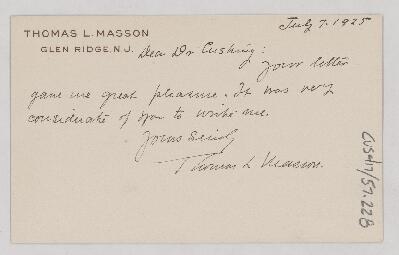 THOMAS L. MASSON
GLEN RIDGE, N.J.
July 7. 1925
Dear Dr Cushing:
Your letter
gave me great pleasure. It was very
considerate of you to write me.
Yours Sincly
Thomas L Masson.
Cush/17/57.228